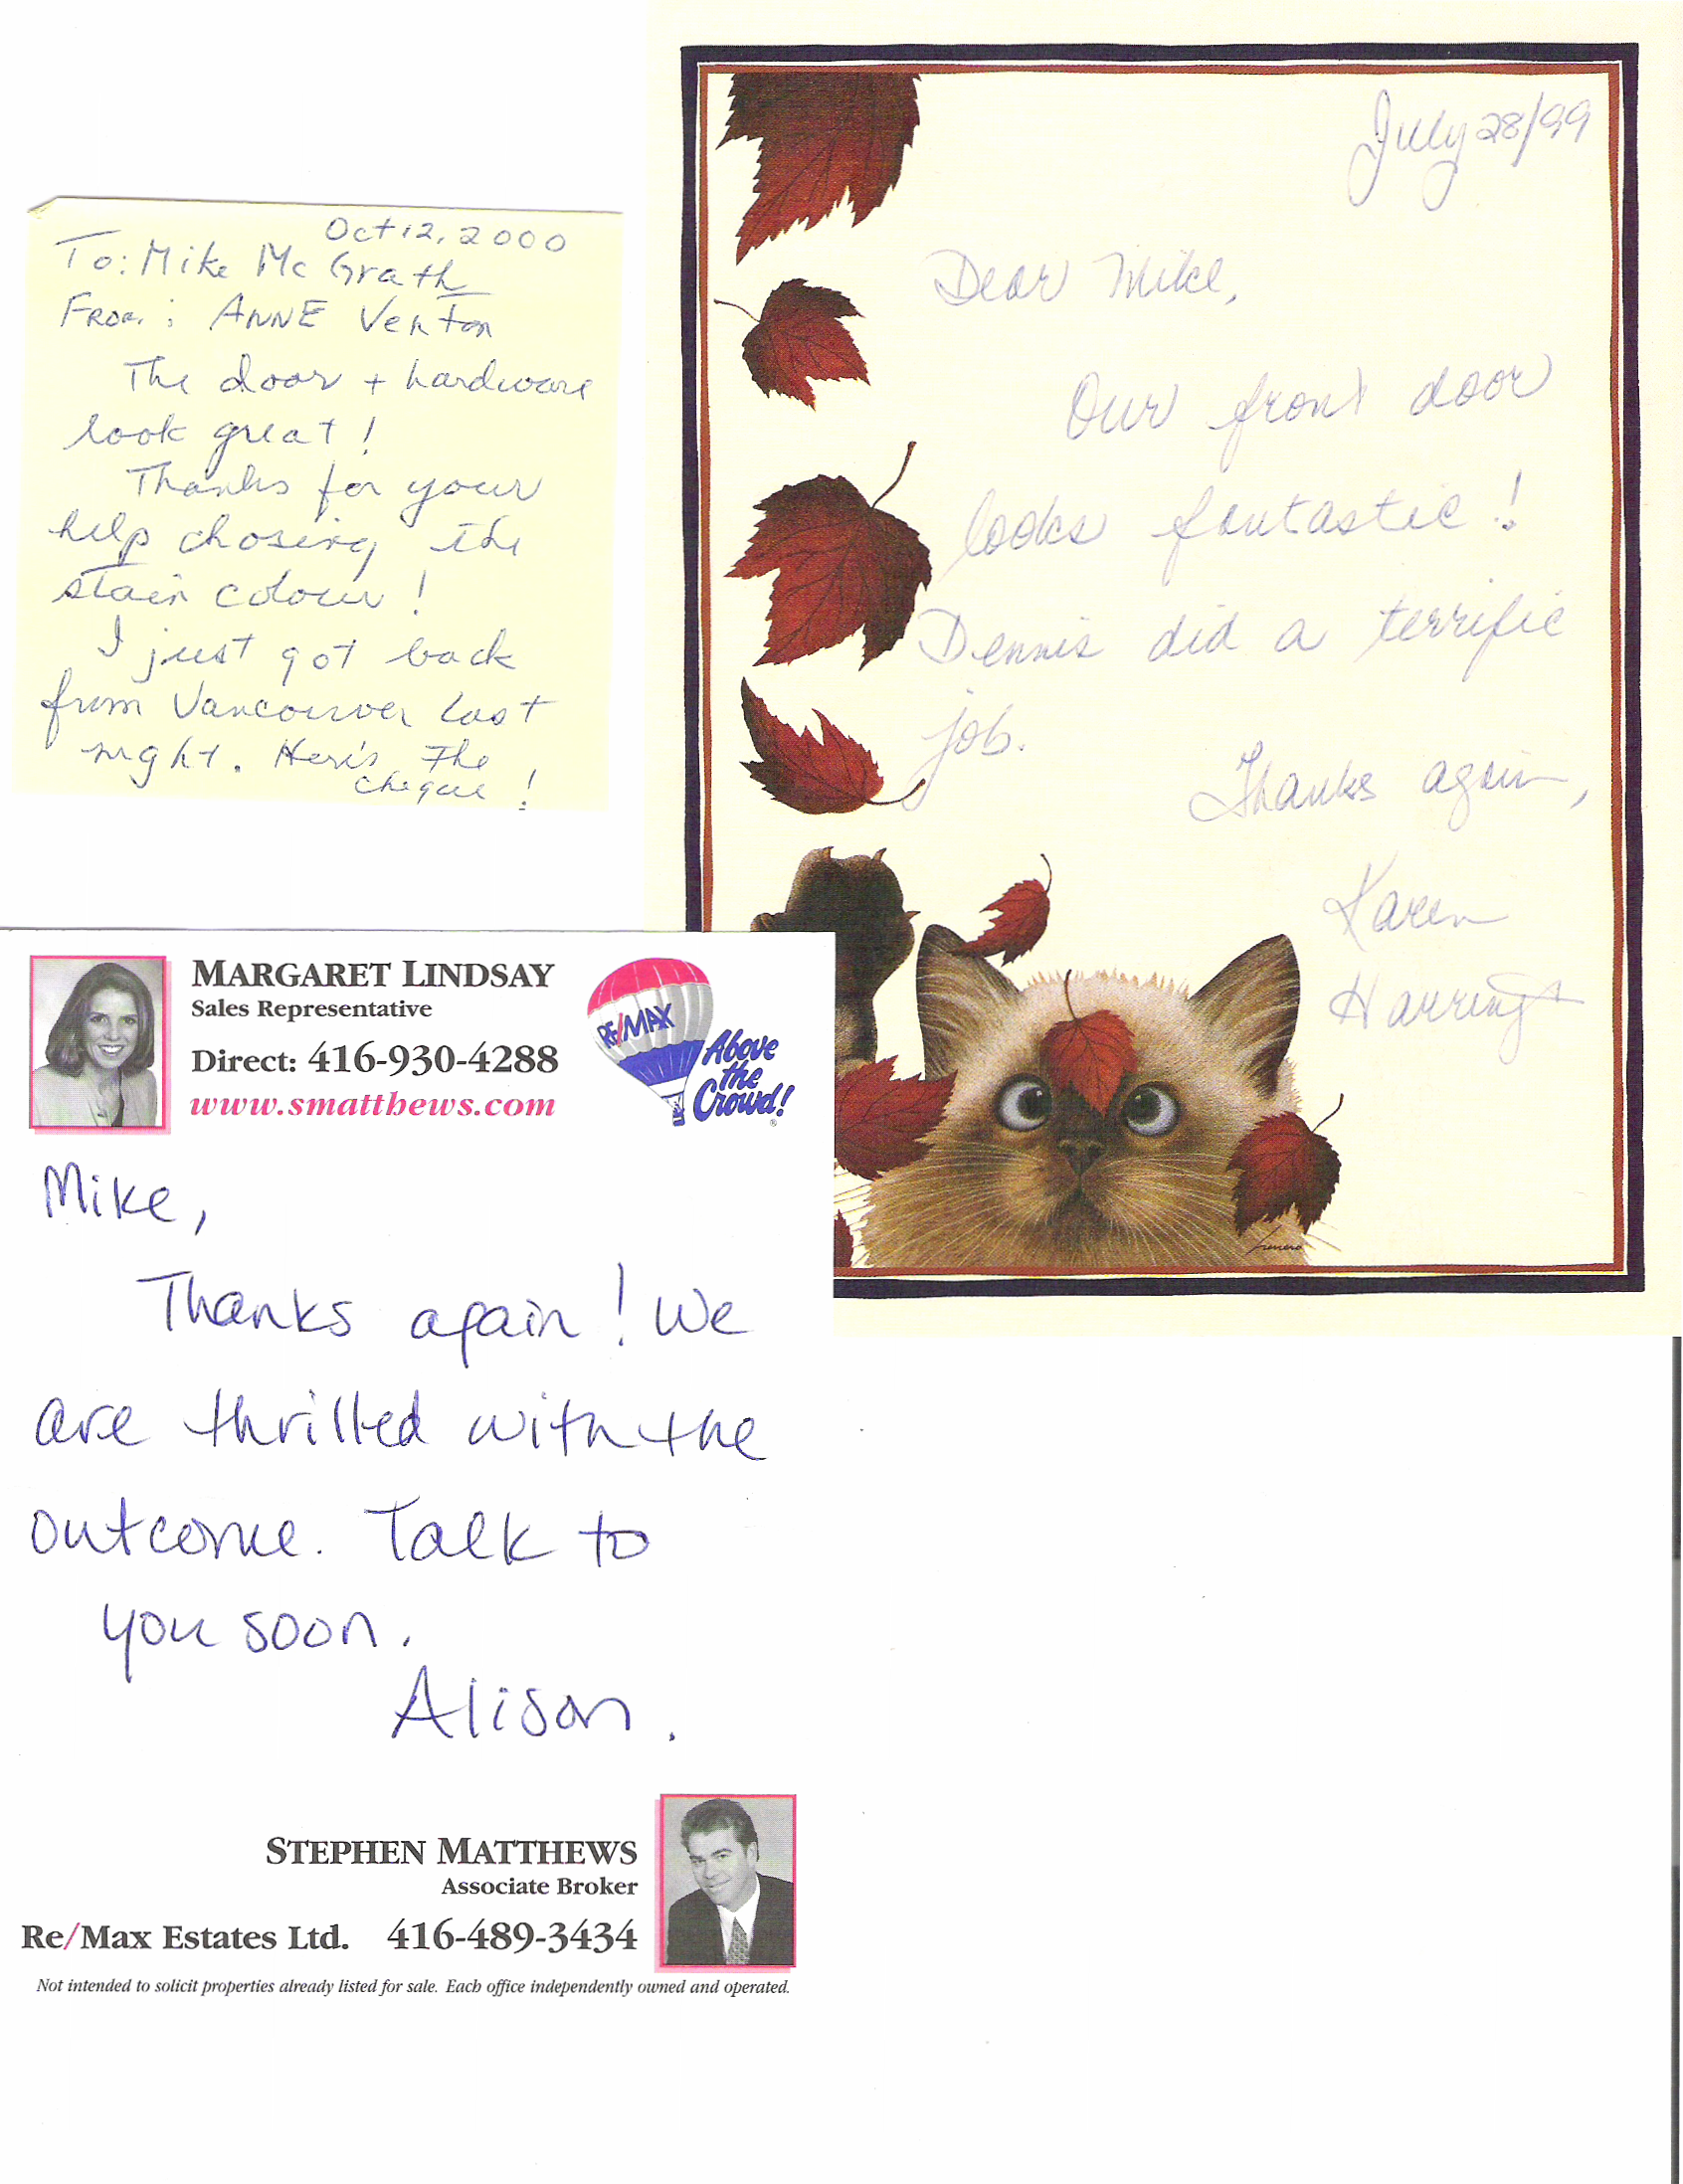 Oct 12, 2000
To: Mike McGrath
From: ANNE Venton
The door + hardware
look great!
Thanks for your
help chosing the
stain colour!
I just got back
from Vancouver last
night. Here's the
cheque!
July 28/99
Dear Mike,
Our front door
looks fantastic!
Dennis did a terrific
job.
Thanks again,
Karen
MARGARET LINDSAY
Sales Representative
Direct: 416-930-4288
www.smatthews.com
RE/MAX
Above
the
Crowd!
®
Mike,
Thanks again! We
are thrilled with the
outcome. Talk to
you soon.
Alison.
STEPHEN MATTHEWS
Associate Broker
Re/Max Estates Ltd. 416-489-3434
Not intended to solicit properties already listed for sale. Each office independently owned and operated.